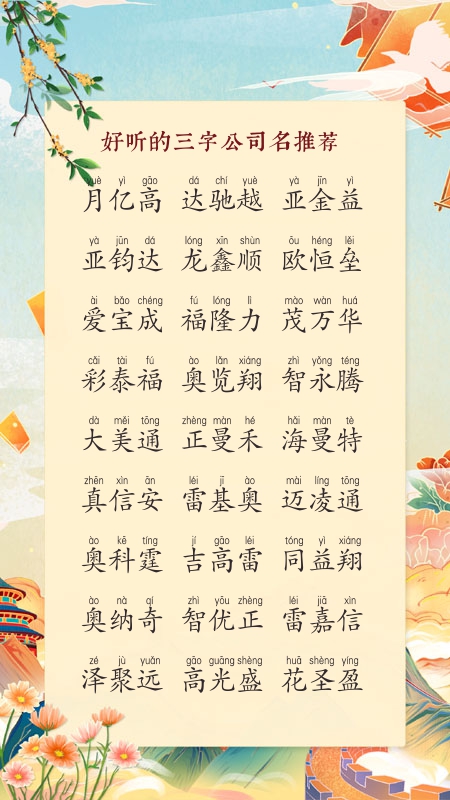 好听的三字公司名推荐
yuè yì gāo dá chí yuè yà jīn yì
月亿高 达驰越 亚金益
yà jūn dá lóng xīn shùn ōu héng lěi
亚钧达 龙鑫顺 欧恒垒
ài bǎo chéng fú lóng lì mào wàn huá
爱宝成 福隆力 茂万华
cǎi tài fú ào lǎn xiáng zhì yǒng téng
彩泰福 奥览翔 智永腾
dà měi tōng zhèng màn hé hǎi màn tè
大美通 正曼禾 海曼特
zhēn xìn ān léi jī ào mài líng tōng
真信安 雷基奥 迈凌通
ào kē tíng jí gāo léi tóng yì xiáng
奥科霆 吉高雷 同益翔
ào nà qí zhì yōu zhèng léi jiā xìn
奥纳奇 智优正 雷嘉信
zé jù yuǎn gāo guāng shèng huā shèng yíng
泽聚远 高光盛 花圣盈